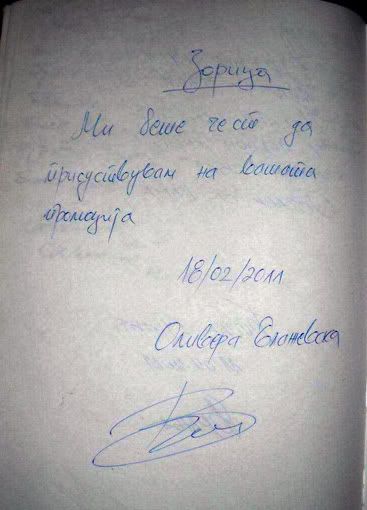 Зорица
Ми беше чест да
присуствувам на вашата
промоција
18/02/2011
Оливера Блажевска